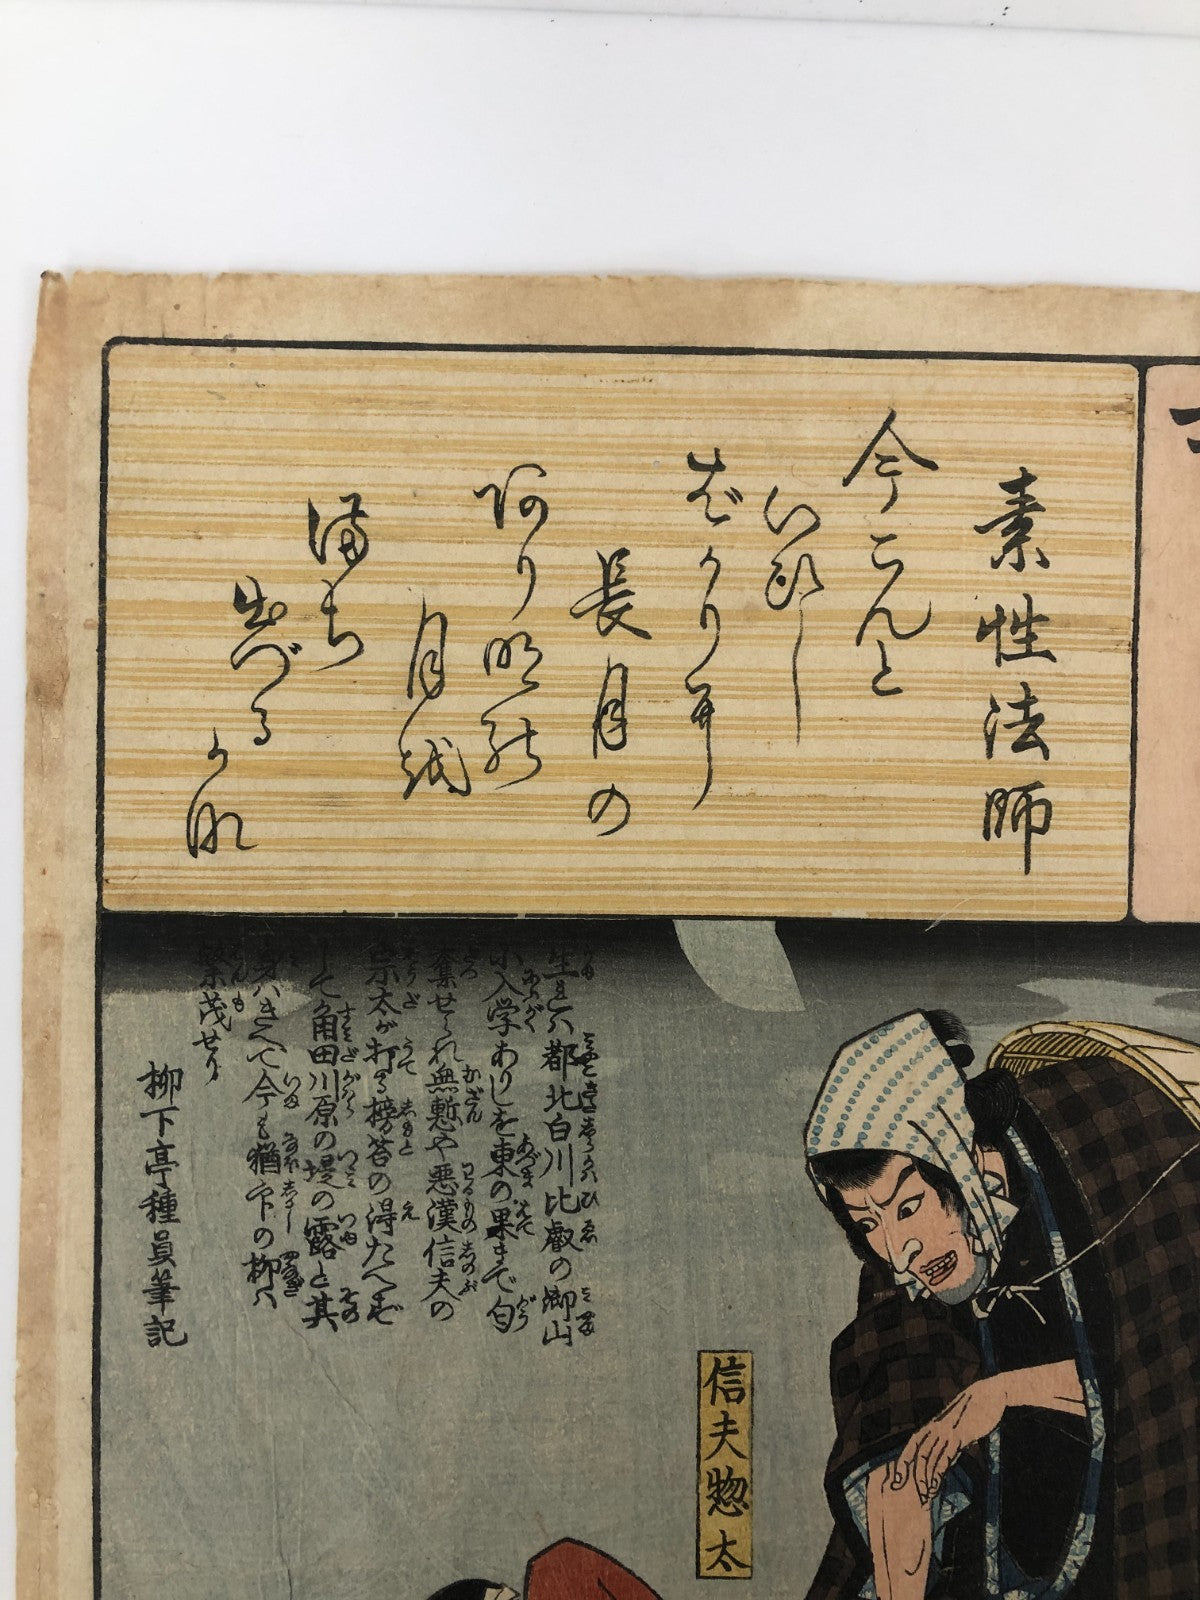 素性法師
今こんと
いひし
ばかり尓
長月の
阿り明能
月越
満ち
出づる
か那
生れハ都北白川比叡の御山
に入学ありしを東の果まで勾
奪せられ無慙や悪漢信夫の
宗太が打る榜笞の得たへず
して角田川原の堤の露と其
身ハきへて今も猶印の柳ハ
繁茂せり
柳下亭種員筆記
信夫惣太